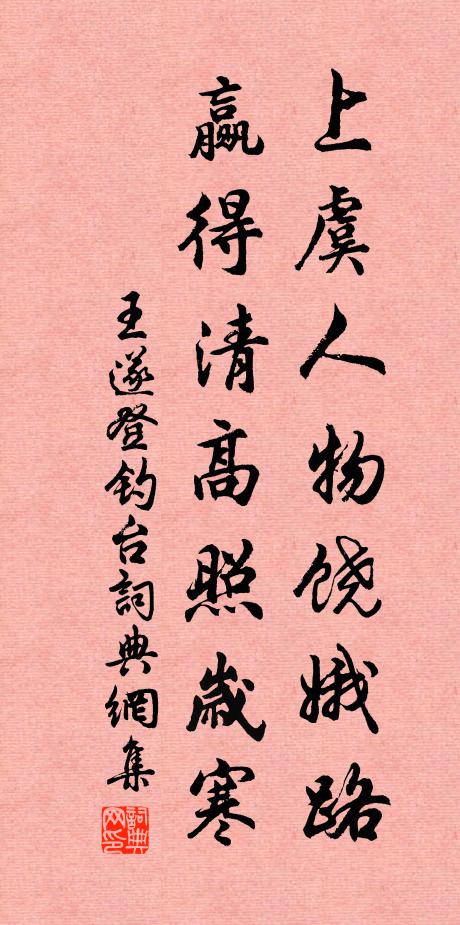 上虞人物饶娥路
赢得清高照岁寒
王遂登钓台詞典網集
詞典网印